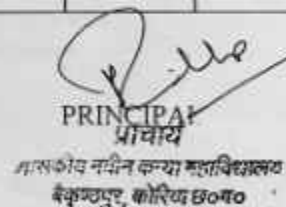 PRINCIPAL
प्राचार्य
शासकीय नवीन कन्या महाविद्यालय
बैकुण्ठपुर, कोरिया छ०ग०